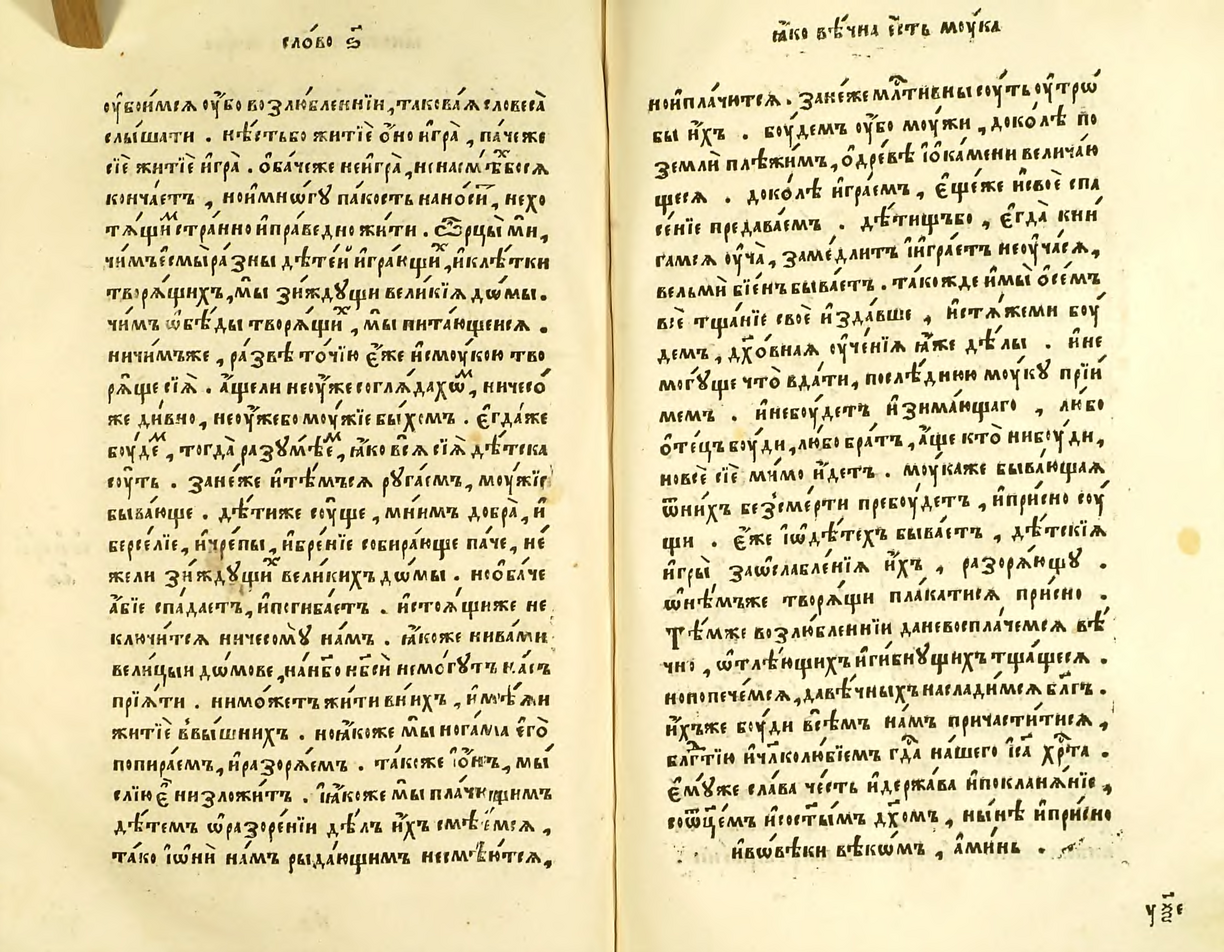 сло́во ѕ҃
оу҆бои́мсѧ оу҆́бо возлю́бленнїи, такова́ѧ словеса̀
слы́шати . нѣ́стьбо житїѐ ѻ҆́но и҆гра̀, па́чеже
сїѐ житїѐ и҆гра̀ . ѻ҆ба́чеже неи҆гра̀, ненасмѣ́ хбосѧ
конча́етъ , нои҆мно́гꙋ па́кость нано́си, нехо
тѧ́щимстра́нно и҆пра́ведно жи́ти . ѿрцы́ ми,
чи́мъесмы̀ ра́зны дѣте́й и҆гра́ющих, и҆клѣ́тки
творѧ́щихъ, мы̀ зи́ждꙋщи вели́кїѧ до́мы.
чи́мъ ѡ҆бѣ́ды творѧ́щих, мы̀ пита́ющеисѧ .
ничи́мъже, ра́звѣ то́чїю є҆́же и҆смоу́кою тво
рѧ́ще сїѧ̀ . а҆́щели неоу҆́же соглѧ́дахѡм, ничесо́
же ди́вно, неоу҆́жебо моу́жїе бы́хомъ . є҆гда́же
боу́дем, тогда̀ разꙋмѣ́ем, ꙗ҆́ко всѧ̀ сїѧ̀ дѣ́тска
соу́ть . зане́же и҆тѣ́мъсѧ рꙋга́емъ, моу́жїе
быва́юще . дѣ́тиже соу́ще, мни́мъ добра̀, и҆
берсе́лїе, и҆чре́пы, и҆бре́нїе собира́юще па́че, не́
жели зи́ждꙋщих вели́кихъ до́мы . нооба́че
а҆́бїе спа́даетъ, и҆погиба́етъ . и҆стоѧ́щиже не
ключи́тсѧ ничесомꙋ̀ на́мъ . ꙗ҆́коже нива́ми
вели́цыи до́мове, на́нбо нб҃си́ немо́гꙋтъ на́съ
прїѧ́ти . нимо́жетъ жи́ти вни́хъ , и҆мѣ́ѧи
житїѐ ввы́шнихъ . ноꙗ҆́коже мы̀ нога́ма є҆гѡ̀
попира́емъ, и҆разорѧ́емъ . та́коже і҆ѻ́нъ, мы́
слїю є҆̀ низложи́тъ . і҆ꙗ҆́коже мы̀ пла́чющимъ
дѣ́темъ ѡ҆разоре́нїи дѣ́лъ и҆́хъ смѣе́мсѧ ,
та́ко і҆ѡ҆нѝ на́мъ рыда́ющимъ несмѣю́тсѧ,
ꙗ҆́ко вѣ́чна є҆́сть моу́ка
нои҆пла́читсѧ . зане́же мл҃тивны соу́ть оу҆тро́
бы и҆́хъ . боу́демъ оу҆́бо моу́жи , доко́лѣ по
землѝ плѣ́жимъ, ѻ҆дре́вѣ і҆ѻка́мени велича́ю
щесѧ . доко́лѣ и҆гра́емъ, є҆ще́же и҆своѐ спа
се́нїе предава́емъ . дѣ́тищъбо , є҆гда̀ кни́
гамсѧ оу҆ча̀, заме́длитъ і҆игра́етъ неоу҆ча́сѧ,
вельмѝ бїе́нъ быва́етъ . та́кожде и҆мы̀ ѻ҆се́мъ
всѐ тща́нїе своѐ и҆зда́вше , и҆стѧ́жеми боу́
демъ, дх҃о́внаѧ оу҆че́нїѧ ꙗ҆́же дѣ́лы . и҆не
могꙋ́ще что̀ вда́ти, послѣ́днюю моу́кꙋ прїи́
мемъ . и҆небоу́детъ и҆зима́ющаго , лю́бо
ѻ҆те́цъ боу́ди, лю́бо бра́тъ, а҆́ще кто̀ нибоу́ди,
новсѐ сїѐ ми́мо и҆́детъ . моу́каже быва́ющаѧ
ѿни́хъ безсме́рти пребоу́детъ , и҆при́сно соу́
щи . є҆́же і҆ѡ҆дѣ́техъ быва́етъ , дѣ́тскїѧ
и҆гры̀ заѡ҆слабле́нїѧ и҆́хъ , разорѧ́ющꙋ .
ѡ҆не́мъже творѧ́щи пла́катисѧ при́сно .
Тѣ́мже возлю́бленнїи даневосплаче́мсѧ вѣ́
чно , ѡ҆тлѣ́ющихъ и҆ги́бнꙋщихъ тща́щесѧ .
нопопече́мсѧ, давѣ́чныхъ наслади́мсѧ бл҃гъ .
и҆́хъже боу́ди всѣ́мъ на́мъ причасти́тисѧ ,
бл҃гтїю и҆чл҃колю́бїемъ гд҃а на́шего і҆с҃а хр҃та .
є҆мꙋ́же сла́ва че́сть и҆держа́ва и҆поклонѧ́нїе ,
соѿце́мъ и҆сост҃ы́мъ дх҃омъ , ны́нѣ и҆при́сно
и҆вовѣ́ки вѣко́мъ , а҆ми́нь .